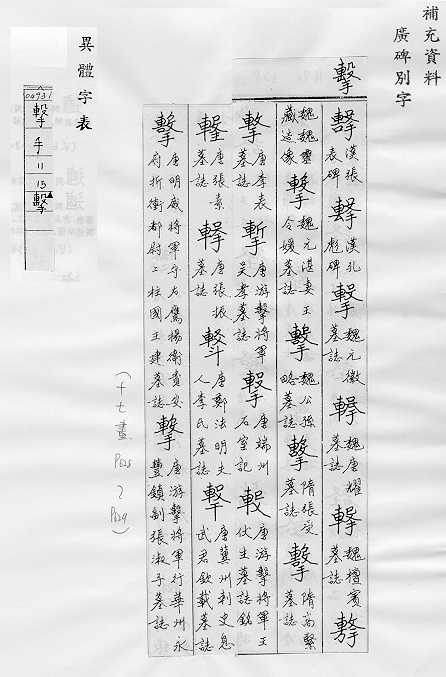 補充資料
廣碑別字
擊
擊 漢張
表碑
擊 漢孔
彪碑
擊 魏元徽
墓誌
擊 魏唐耀
墓誌
擊 魏檀賓
墓誌
擊
魏魏靈
藏造像
擊 魏元湛妻王
令媛墓誌
擊 魏公孫
略墓誌
擊 隋張受
墓誌
擊 隋尚
墓誌
擊 唐李表
墓誌
擊 唐游擊將軍
吳孝墓誌
擊 唐端州
石室記
擊 唐游擊將軍王
伏生墓誌銘
擊 唐張素
墓誌
擊 唐張振
墓誌
擊 唐鄭法明夫
人李氏墓誌
擊 唐冀州刺史息
武君欽載墓誌
擊 唐明威將軍守左鷹揚衛貴安
府折衝都尉上柱國王建墓誌
擊 唐游擊將軍行華州永
豐鎮副張淑子墓誌
(十七畫
異體字表
04931
擊
手
11
15
擊